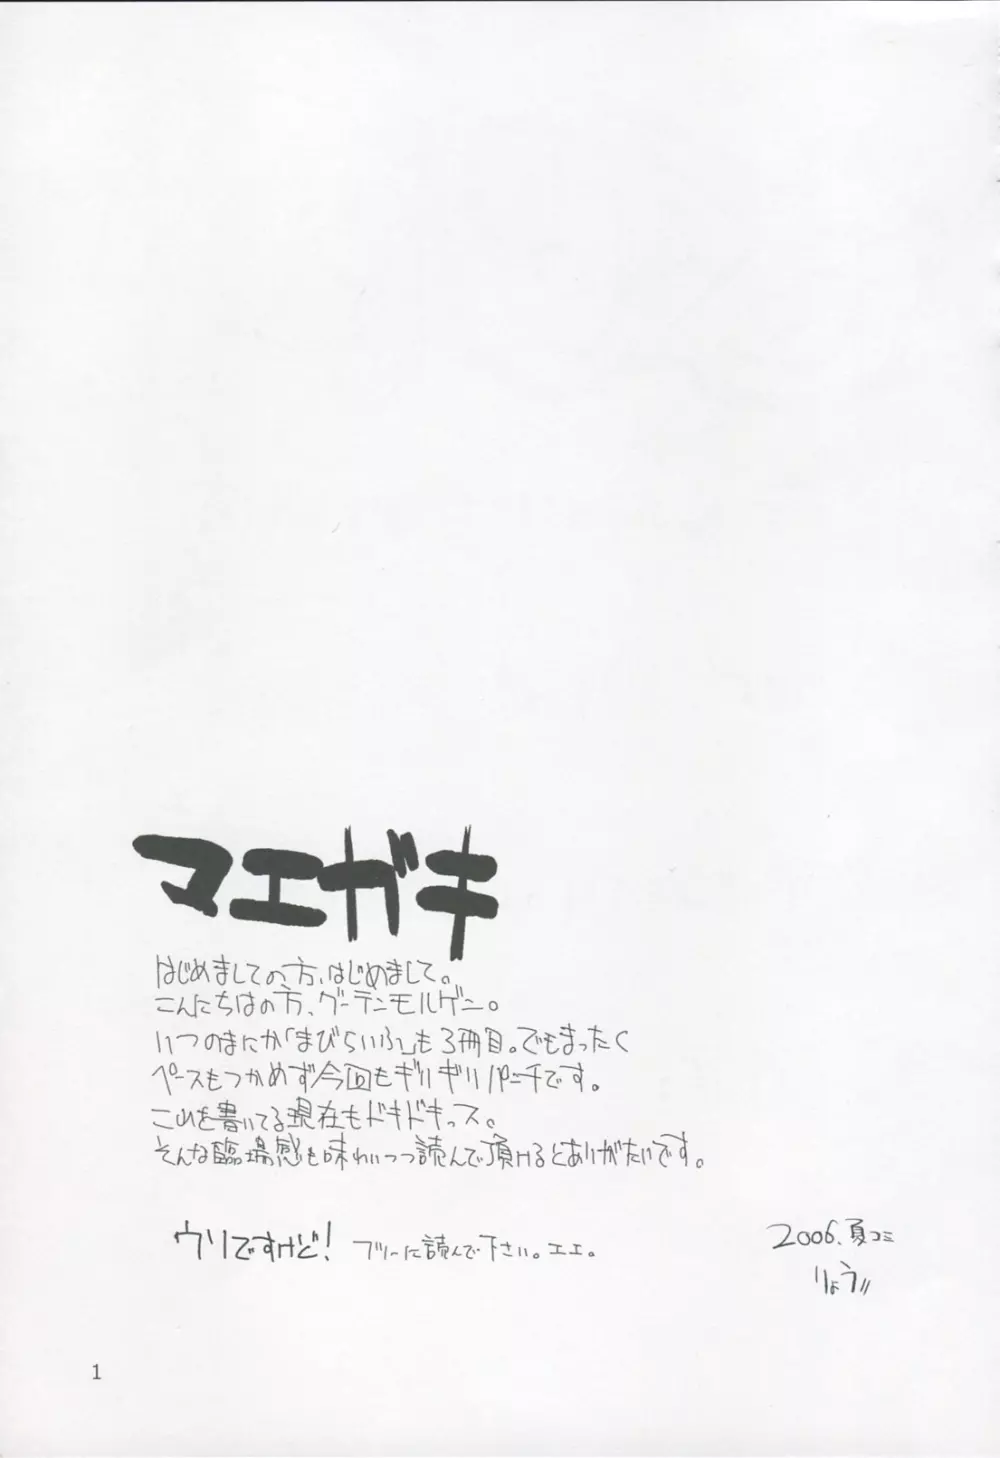 マエガキ
はじめましての方、はじめまして。
こんにちはの方、グーテンモルゲン。
いつのまにか「まびらいふ」も3冊目。でもまったく
ペースもつかめず今回もギリギリパンチです。
このを書いてる現在もドキドキっス。
そんな臨場感も味わいつつ読んで頂けるとありがたいです。
ウソですけど! フツーに読んで下さい。エエ。
2006.夏コミ
りょう//
1